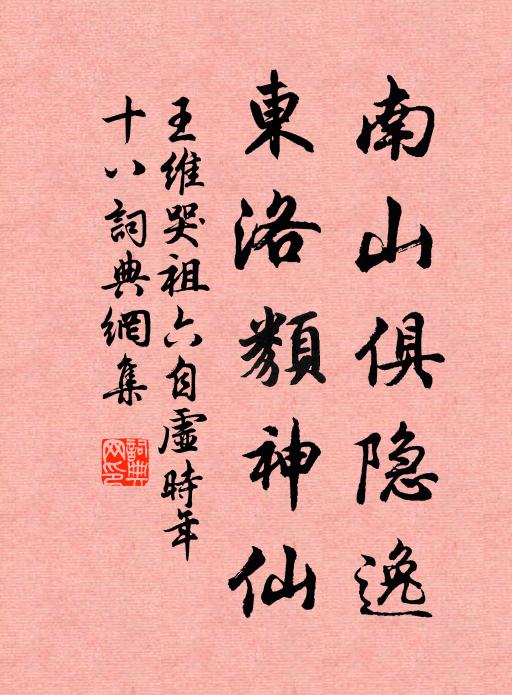 南山俱隐逸
東洛類神仙
王維哭祖六自虛時年
十八詞典網集
詞典網印